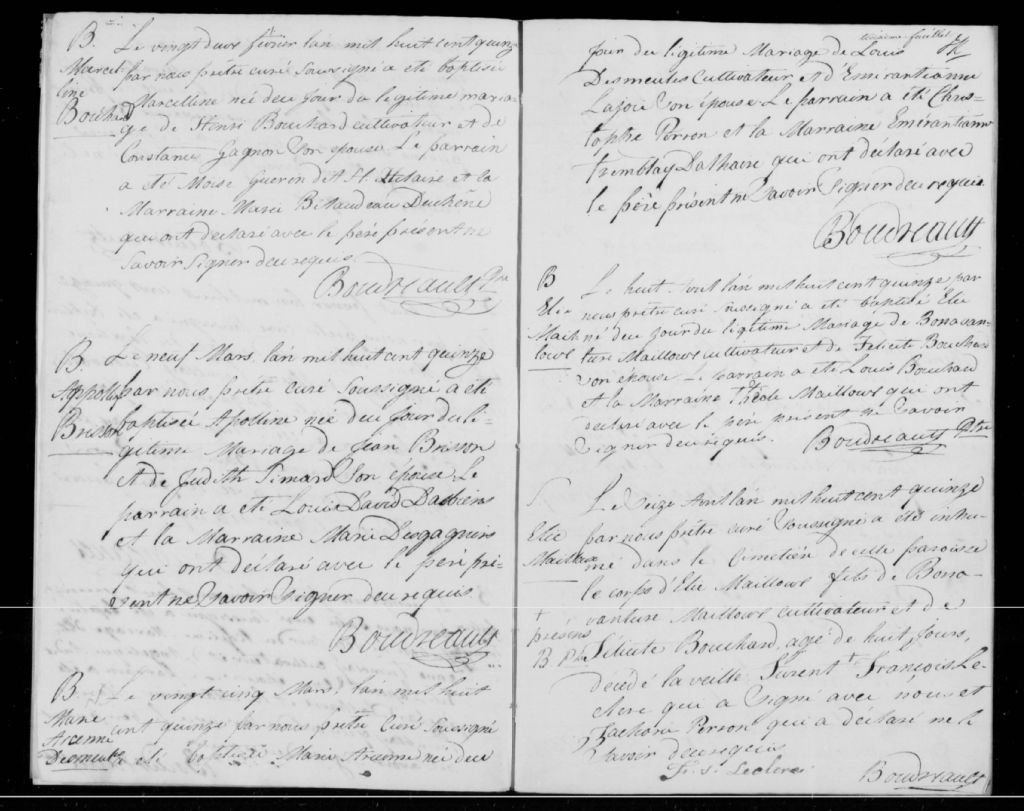 B.
Marcelline
Bouchard
Le vingt deux février l'an mil huit cent quinze
par nous prêtre curé soussigné a été baptisée
Marcelline née du jour du légitime maria-
ge de Henri Bouchard cultivateur et de
Constance Gagnon son épouse Le parrain
a été Moïse Guerin dit St. Hilaire et la
Marraine Marie Bilaudeau Duchêne
qui ont déclaré avec le père présent ne
savoir signer de ce requis
Boudreault Ptre
B.
Apolline
Brisson
Le neuf Mars, l'an mil huit cent quinze
par nous prêtre curé soussigné a été
baptisée Apolline née du jour du lé-
gitime Mariage de Jean Brisson
et de Judith Simard son épouse Le
parrain a été Louis David Dalbiens
et la Marraine Marie Desgagniers
qui ont déclaré avec le père pré-
sent ne savoir signer de ce requis
Boudreault
B.
Marie
Arcenne
Desmeules
Le vingt cinq Mars, l'an mil huit
cent quinze par nous prêtre curé soussigné
a été baptisée Marie Arcenne née du
feuillet
jour du légitime Mariage de Louis
Desmeules cultivateur et d'Emérantianne
Lajoie son épouse Le parrain a été Chris-
tophe Person et la Marraine Emérantianne
Tremblay Dalhaire qui ont déclaré avec
le père présent ne savoir signer de ce requis
Boudreault
B
Elie
Mail-
lows
Le huit Avril l'an mil huit cent quinze par
nous prêtre curé soussigné a été baptisé Elie
né du jour du légitime Mariage de Bonavan-
ture Maillows cultivateur et de Félicité Bouchard
son épouse Le parrain a été Louis Bouchard
et la Marraine Maillows qui ont
déclaré avec le père présent ne savoir
signer de ce requis.
Boudreault Ptre
S
Elie
Maillows
Le seize Avril l'an mil huit cent quinze
par nous prêtre curé soussigné a été inhu-
mé dans le cimetière de cette paroisse
le corps d'Elie Maillows fils de Bona-
vanture Maillows cultivateur et de
+ présens
B Ptre
Félicité Bouchard, agé de huit jours,
décédé la veille furent + François Le-
clerc qui a signé avec nous et
Zacharie Person qui a déclaré ne le
savoir de ce requis
Fr. S. Leclerc
Boudreault